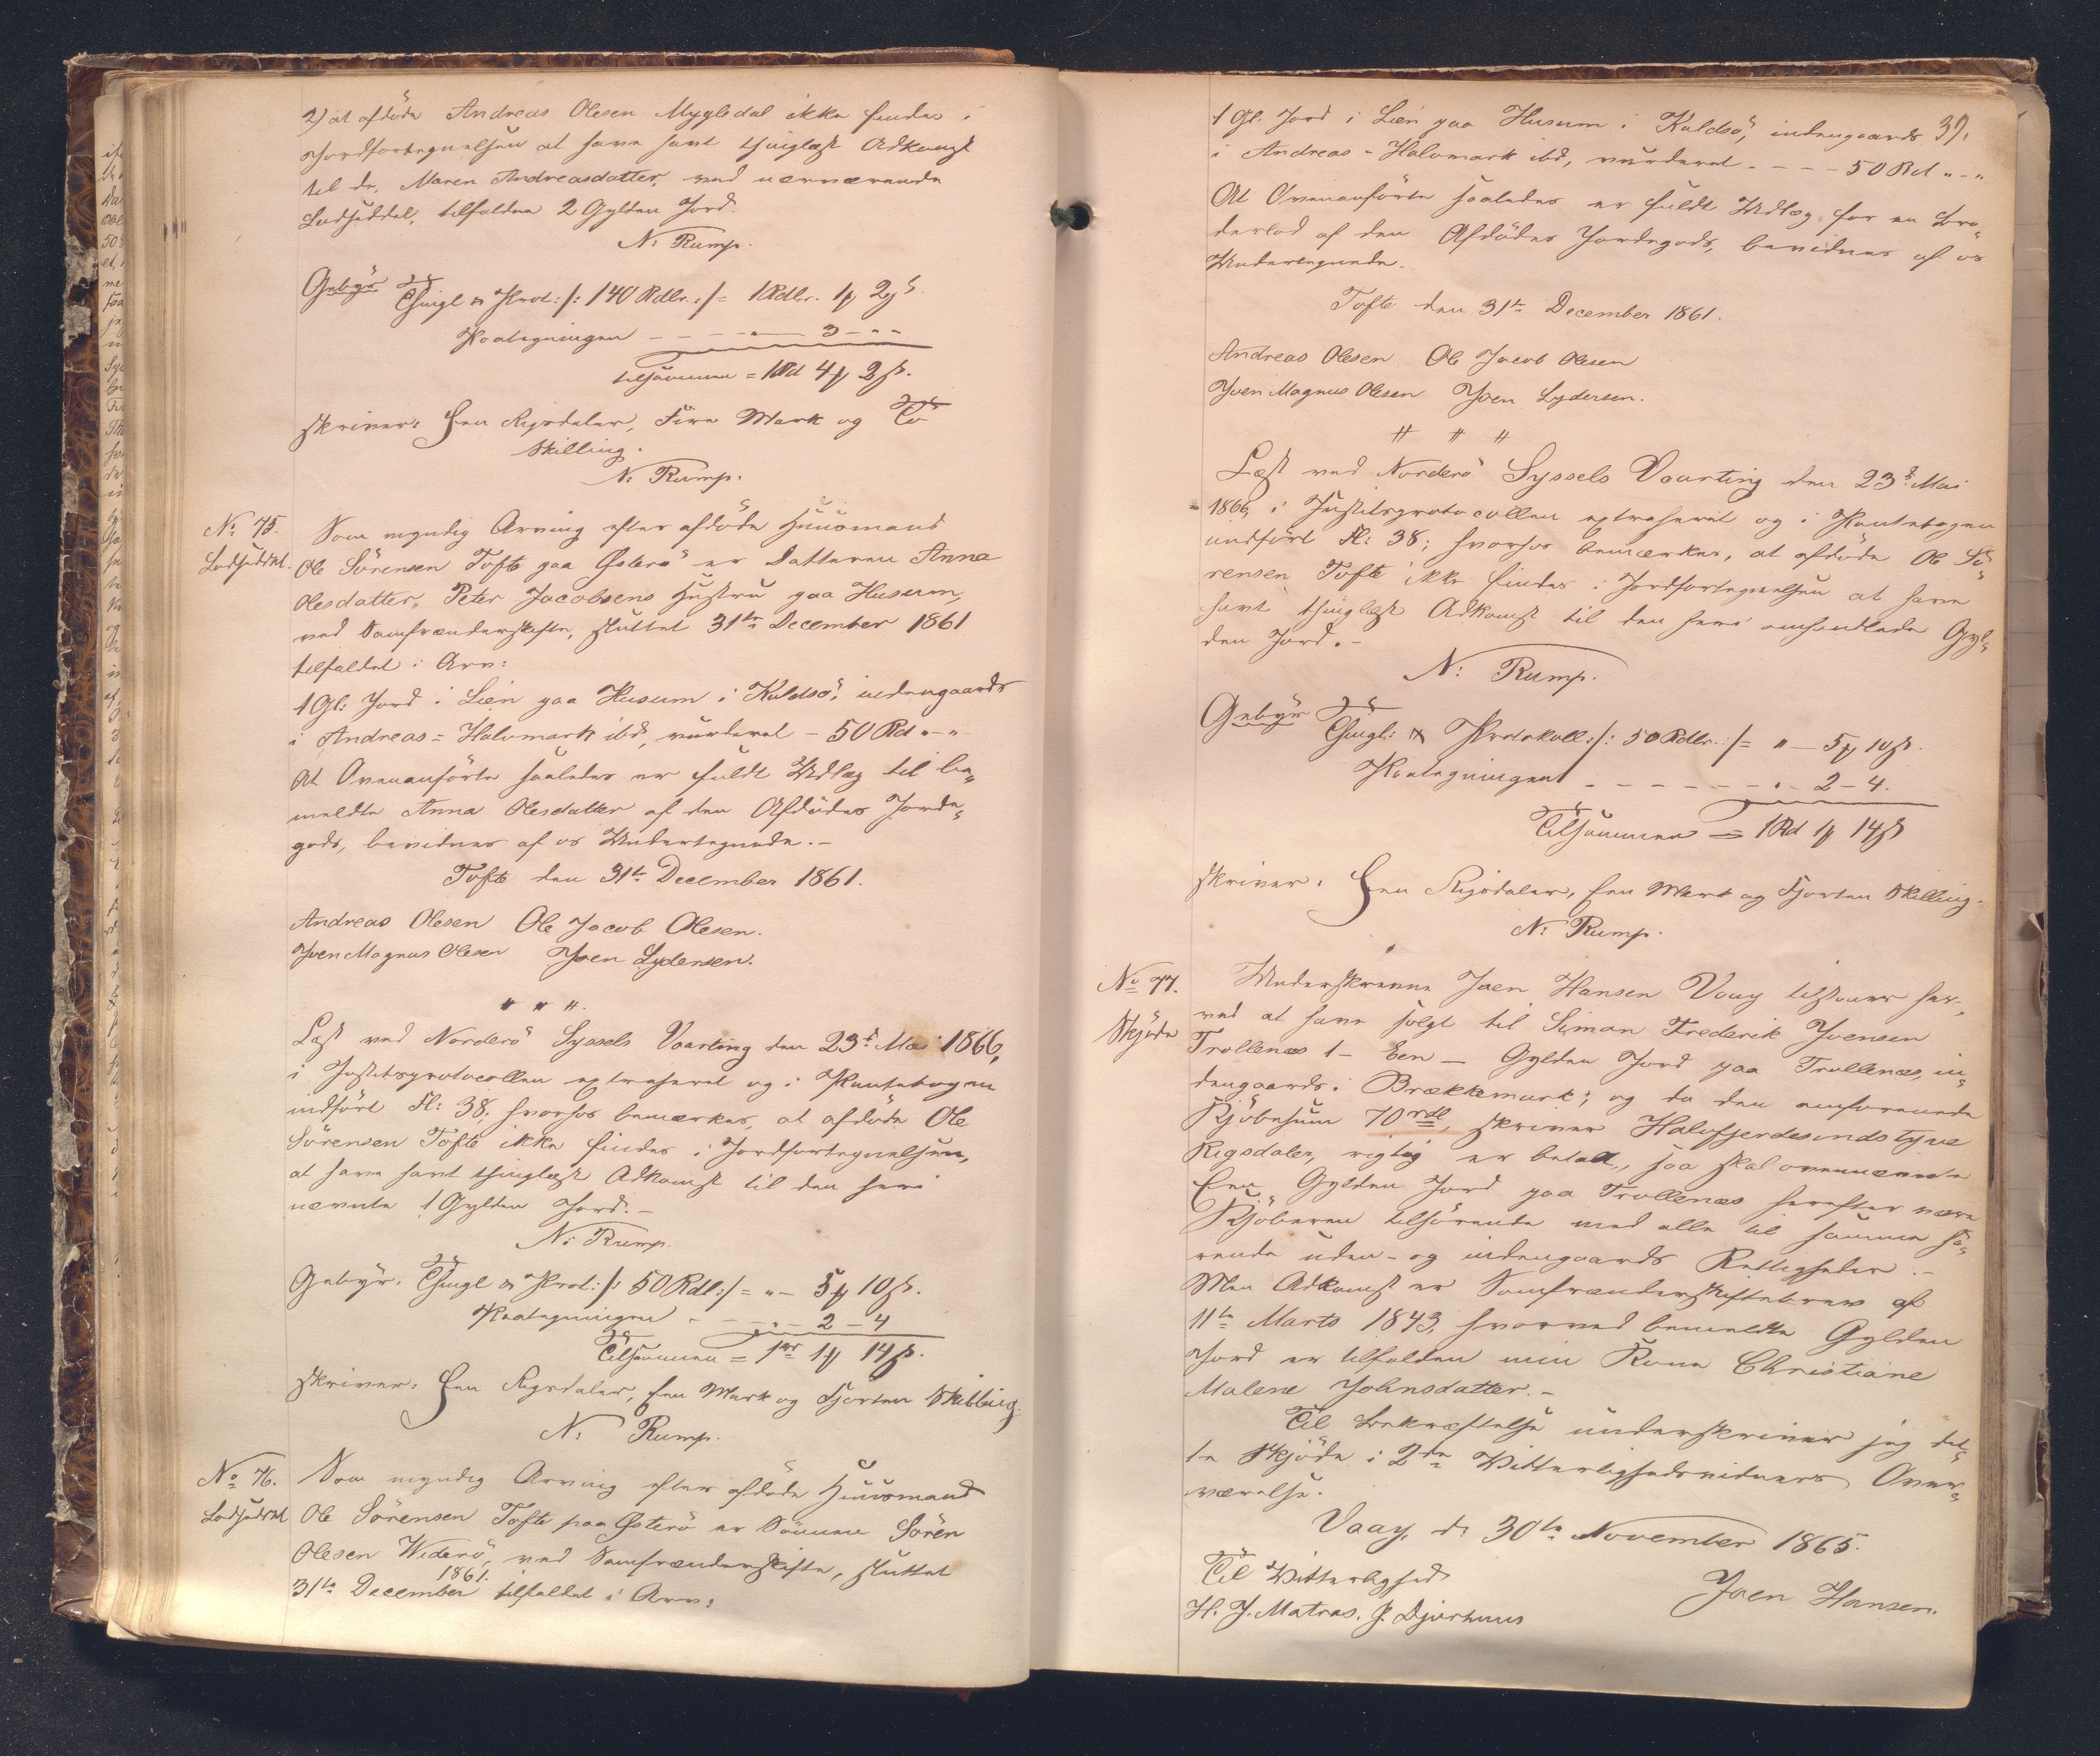 2) at afdöde Andreas Olesen Mygledal ikke findes i
Jordfortegnelsen at have havt thinglæst Adkomst
til de, Maren Andreasdatter, ved nærværende
Lodseddel, tilfaldne 2 Gylden Jord.
N: Rump.
Gebÿr Thingl & Prot:/: 140 Rdlr. :/ = 1 Rdlr. 1 ꝟ 2 ß
Paategningen - - - " - 3 - "
tilsammen = 1 Rd 4 ꝟ 2 ß.
skriver: Een Rigsdaler, Fire Mark og To
Skilling.
N: Rump.
No 75.
Lodseddel.
Som myndig Arving efter afdöde Huusmand
Ole Sörensen Tofte paa Österö er Datteren Anna
Olesdatter, Peter Jacobsens Hustru paa Husum,
ved Samfrænderskifte, sluttet 31te December 1861
tilfaldet i Arv:
1 Gl: Jord i Lien paa Husum i Kaldsö, indengaards
i Andreas = Halvmark ibd, vurderet - 50 Rd " - "
At Ovenanförte saaledes er fuldt Udlæg til be„
meldte Anna Olesdatter af den Afdödes Jorde„
gods, bevidnes af os Undertegnede. -
Tofte den 31te December 1861.
Andreas Olesen Ole Jacob Olesen.
Joen Magnus Olesen Joen Lydersen.
" " "
Læst ved Norderö Syssels Vaarting den 23de Mai 1866,
i Justitsprotocollen extraheret og i Pantebogen
indfört Fl: 38; hvorhos bemærkes, at afdöde Ole
Sörensen Tofte ikke findes i Jordfortegnelsen,
at have havt thinglæst Adkomst til den heri
nævnte 1 Gylden Jord. -
N: Rump.
Gebÿr. Thingl & Prot:/: 50 Rdl:/ = " - 5 ꝟ 10 ß.
Paategningen - - " - 2 - 4
Tilsammen = 1 Rd 1 ꝟ 14 ß.
skriver: Een Rigsdaler, Een Mark og Fjorten Skilling.
N: Rump.
No 76.
Lodseddel
Som myndig Arving efter afdöde Huusmand
Ole Sörensen Tofte paa Österö er Sönnen Sören
Olesen Widerö, ved Samfrænderskifte, sluttet
31te December 1861. tilfaldet i Arv:
39.
1 Gl. Jord i Lien paa Husum i Kaldsö, indengaards
i Andreas - Halvmark ibd, vurderet - - - - 50 Rd " - "
At Ovenanförte saaledes er fuldt Udlæg for en Bro„
derlod af den Afdödes Jordegods, bevidnes af os
Undertegnede.
Tofte den 31te December 1861.
Andreas Olesen Ole Jacob Olesen
Joen Magnus Olesen Joen Lydersen.
" " "
Læst ved Norderö Syssels Vaarting den 23de Mai
1866, i Justitsprotocollen extraheret og i Pantebogen
indfört Fl: 38; hvorhos bemærkes, at afdöde Ole Sö„
rensen Tofte ikke findes i Jordfortegnelsen at have
havt thinglæst Adkomst til den heri omhandlede Gyl„
den Jord. -
N: Rump.
Gebÿr Thingl: & Protokoll:/: 50 Rdlr. :/ = " - 5 ꝟ 10 ß.
Paategningen - - - - - - " - 2 - 4.
Tilsammen = 1 Rd 1 ꝟ 14 ß
skriver: Een Rigsdaler, Een Mark og Fjorten Skilling.
N: Rump.
No 77.
Skjöde
Underskrevne Joen Hansen Vaag tilstaaer her„
ved at have solgt til Siman Frederik Joensen
Trollenæs 1 - Een - Gylden Jord paa Trollenæs, in„
dengaards i Brækkemark; og da den omforenede
Kjöbesum 70 rdl, skriver Halvfjerdesindstyve
Rigsdaler, rigtig er betalt, saa skal ovennævnte
Een Gylden Jord paa Trollenæs herefter være
Kjöberen tilhörende med alle til samme hö„
rende uden- og indengaards Rettigheder. -
Min Adkomst er Samfrænderskiftebrev af
11te Marts 1843, hvorved bemeldte Gylden
Jord er tilfalden min Kone Christiane
Malene Johnsdatter. -
Til Bekræftelse underskriver jeg det„
te Skjöde i 2de Vitterlighedsvidners Over„
værelse.
Vaag, d: 30te November 1865.
Til Vitterlighed
Joen Hansen.
H. J. Matras. J. Djurhuus